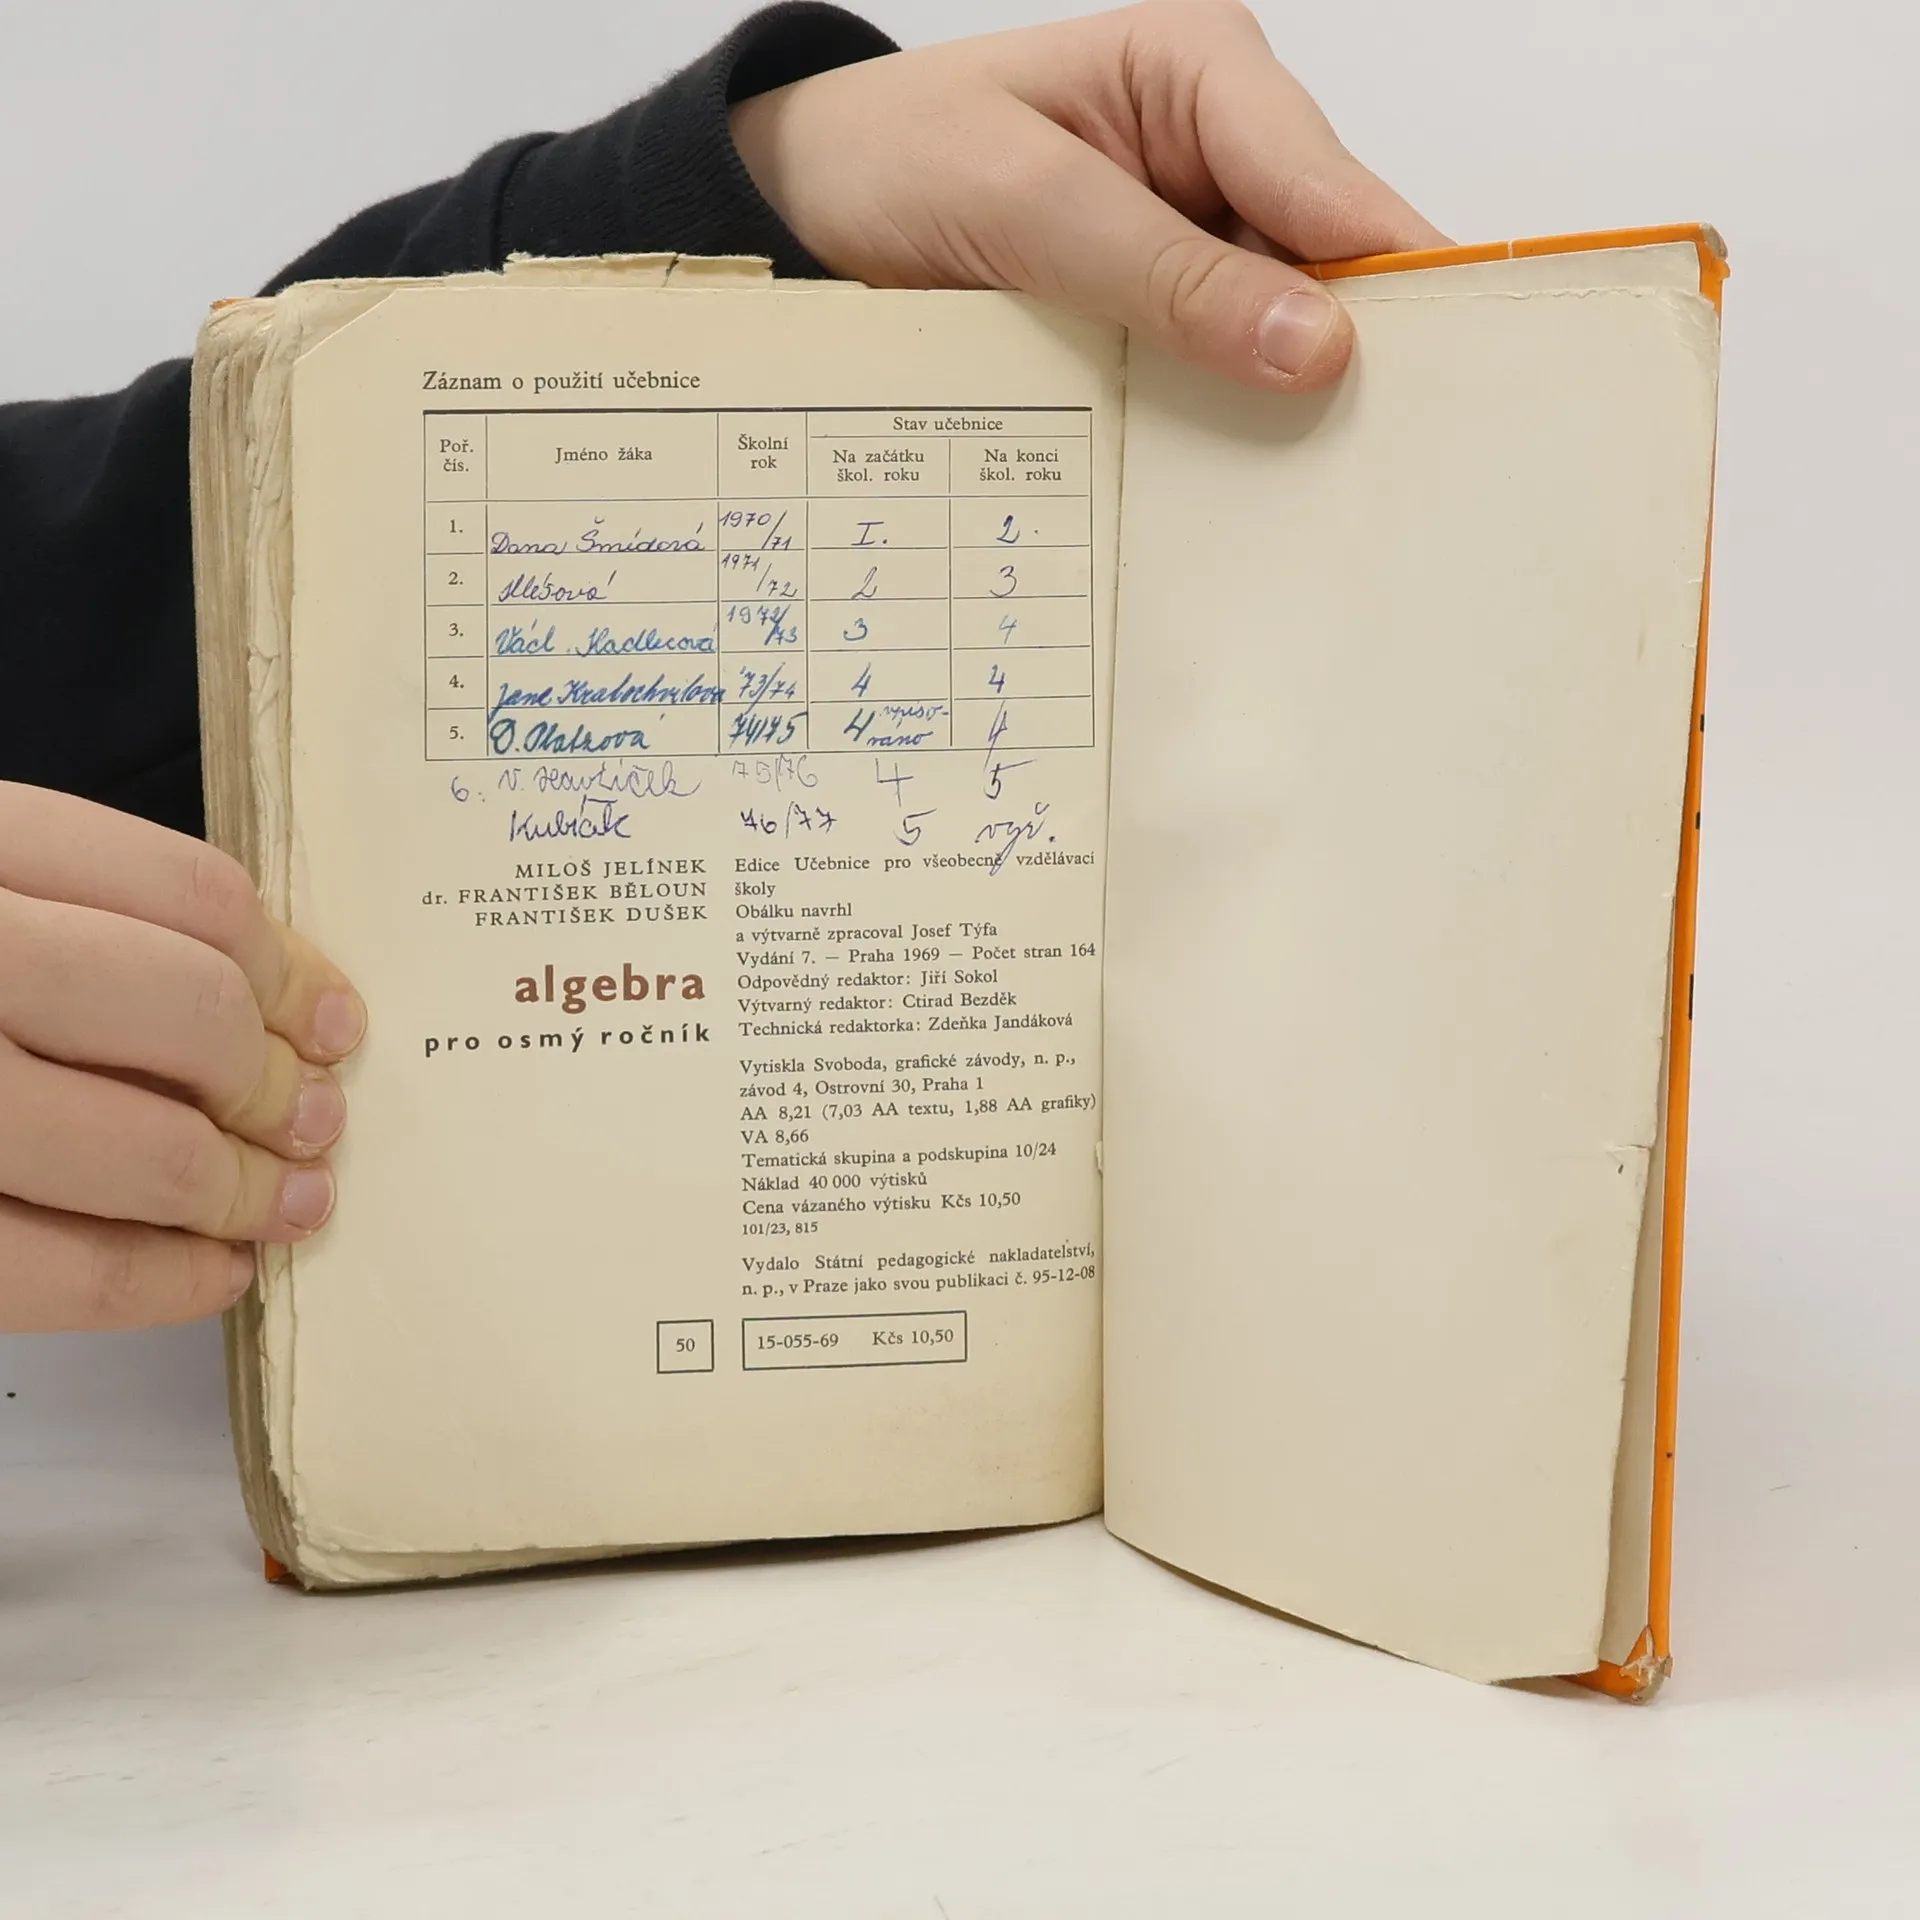 Záznam o použití učebnice
Poř. čís. Jméno žáka Školní rok Stav učebnice
Na začátku škol. roku Na konci škol. roku
1. Dana Šmídová 1970/71 I. 2.
2. 1971/72 2 3
3. Václ. Kadlecová 1972/73 3 4
4. Jana Kratochvílová '73/74 4 4
5. 74/75 4 4
6. V. Havlíček 75/76 4 5
Kubíček 76/77 5 vyř.
MILOŠ JELÍNEK
dr. FRANTIŠEK BĚLOUN
FRANTIŠEK DUŠEK
algebra
pro osmý ročník
Edice Učebnice pro všeobecně vzdělávací
školy
Obálku navrhl
a výtvarně zpracoval Josef Týfa
Vydání 7. — Praha 1969 — Počet stran 164
Odpovědný redaktor: Jiří Sokol
Výtvarný redaktor: Ctirad Bezděk
Technická redaktorka: Zdeňka Jandáková
Vytiskla Svoboda, grafické závody, n. p.,
závod 4, Ostrovní 30, Praha 1
AA 8,21 (7,03 AA textu, 1,88 AA grafiky)
VA 8,66
Tematická skupina a podskupina 10/24
Náklad 40 000 výtisků
Cena vázaného výtisku Kčs 10,50
101/23, 815
Vydalo Státní pedagogické nakladatelství,
n. p., v Praze jako svou publikaci č. 95-12-08
50 15-055-69 Kčs 10,50